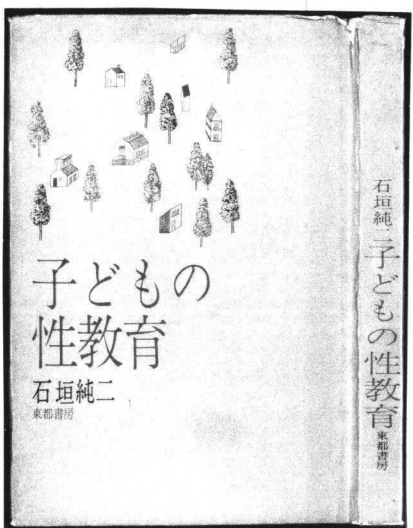 子どもの
性教育
石垣純二
東都書房
石垣純二子どもの性教育東都書房